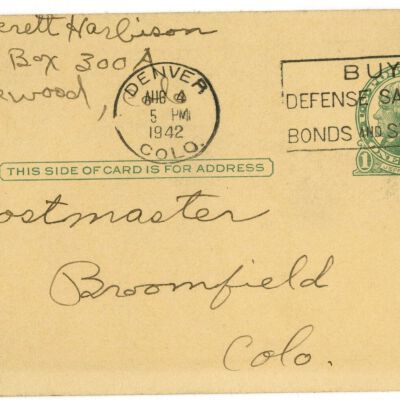 erett Harbison
Box 300A
ewood,
DENVER
AUG 4
5 PM
1942
COLO.
BUY
DEFENSE SA
BONDS AND S
1
THIS SIDE OF CARD IS FOR ADDRESS
ostmaster
Broomfield
Colo.